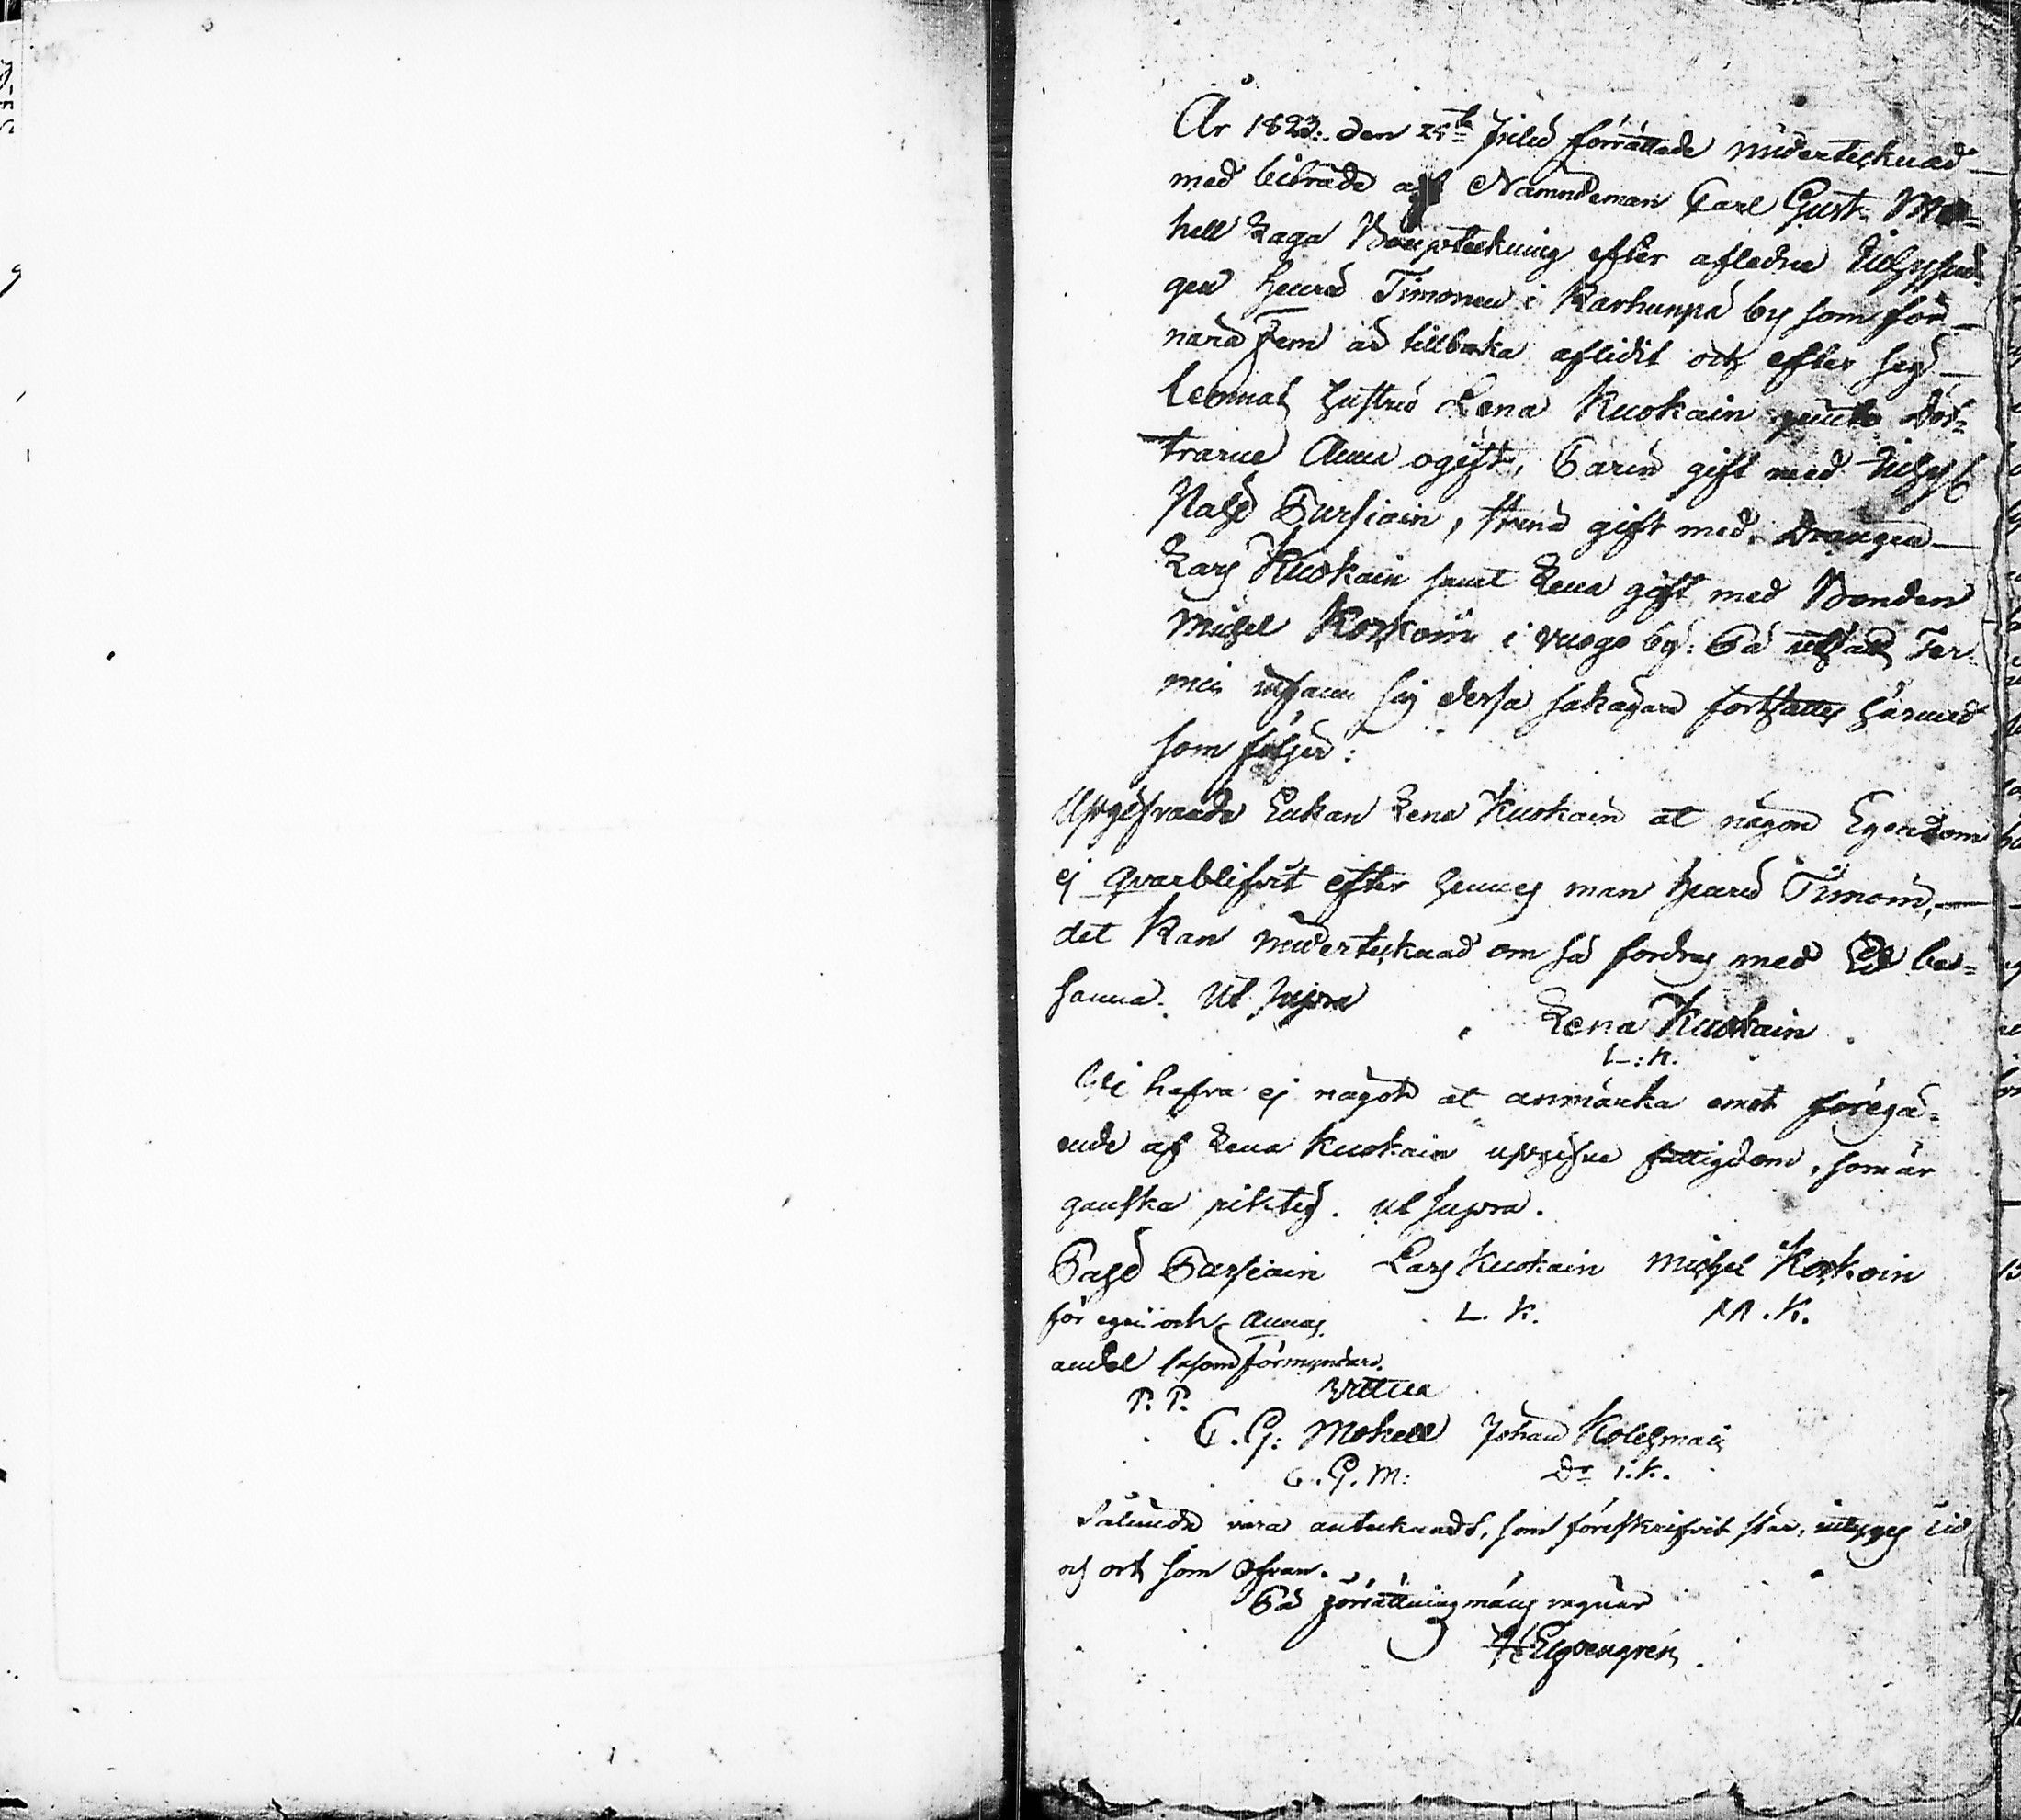 År 1823. den 25te Julii förrättade undertecknad
med biträde af Nämndeman Carl Gust. Mo-
hell Laga Bouptekning efter afledne Inhyssin-
gen Henrik Timonen i Karhunpä by som för
nära Fem år tillbaka aflidit och efter sig
lemnat Hustrun Lena Kuokain samt Döt-
trarne Anna ogift, Carin gift med Inhyss
Påhl Pursiain, Stina gift med Drängen
Lars Kuokain samt Lena gift med Bonden
Michel Korkoin i Vuogo by: På utsatt Ter-
min infann sig dessa sakägare fortsattes härmed
som följer:
Upgifvande Enkan Lena Kuokain at någon Egendom
ej qvarblifvit efter hennes man Henrik Timoin,
det kan undertecknad om så fordras med Ed be-
sanna. Ut supra
Lena Kuokain
L: K.
Vi hafva ej något at anmärka emot föregå-
ende af Lena Kuokain upgifne fattigdom, som är
ganska riktig. ut supra.
Påhl Pursiain Lars Kuokain Michel Korkoin
för egen och Annas L. K. M. K.
andel såsom Förmyndare.
P. P. Vittna
C. G: Mohell Johan Kolehmain
C. G. M: Dr I. K.
Sålunda vara antecknadt, som föreskrifvit står, intygas tid
och ort som ofvan.
På Förrättningmans vägnar